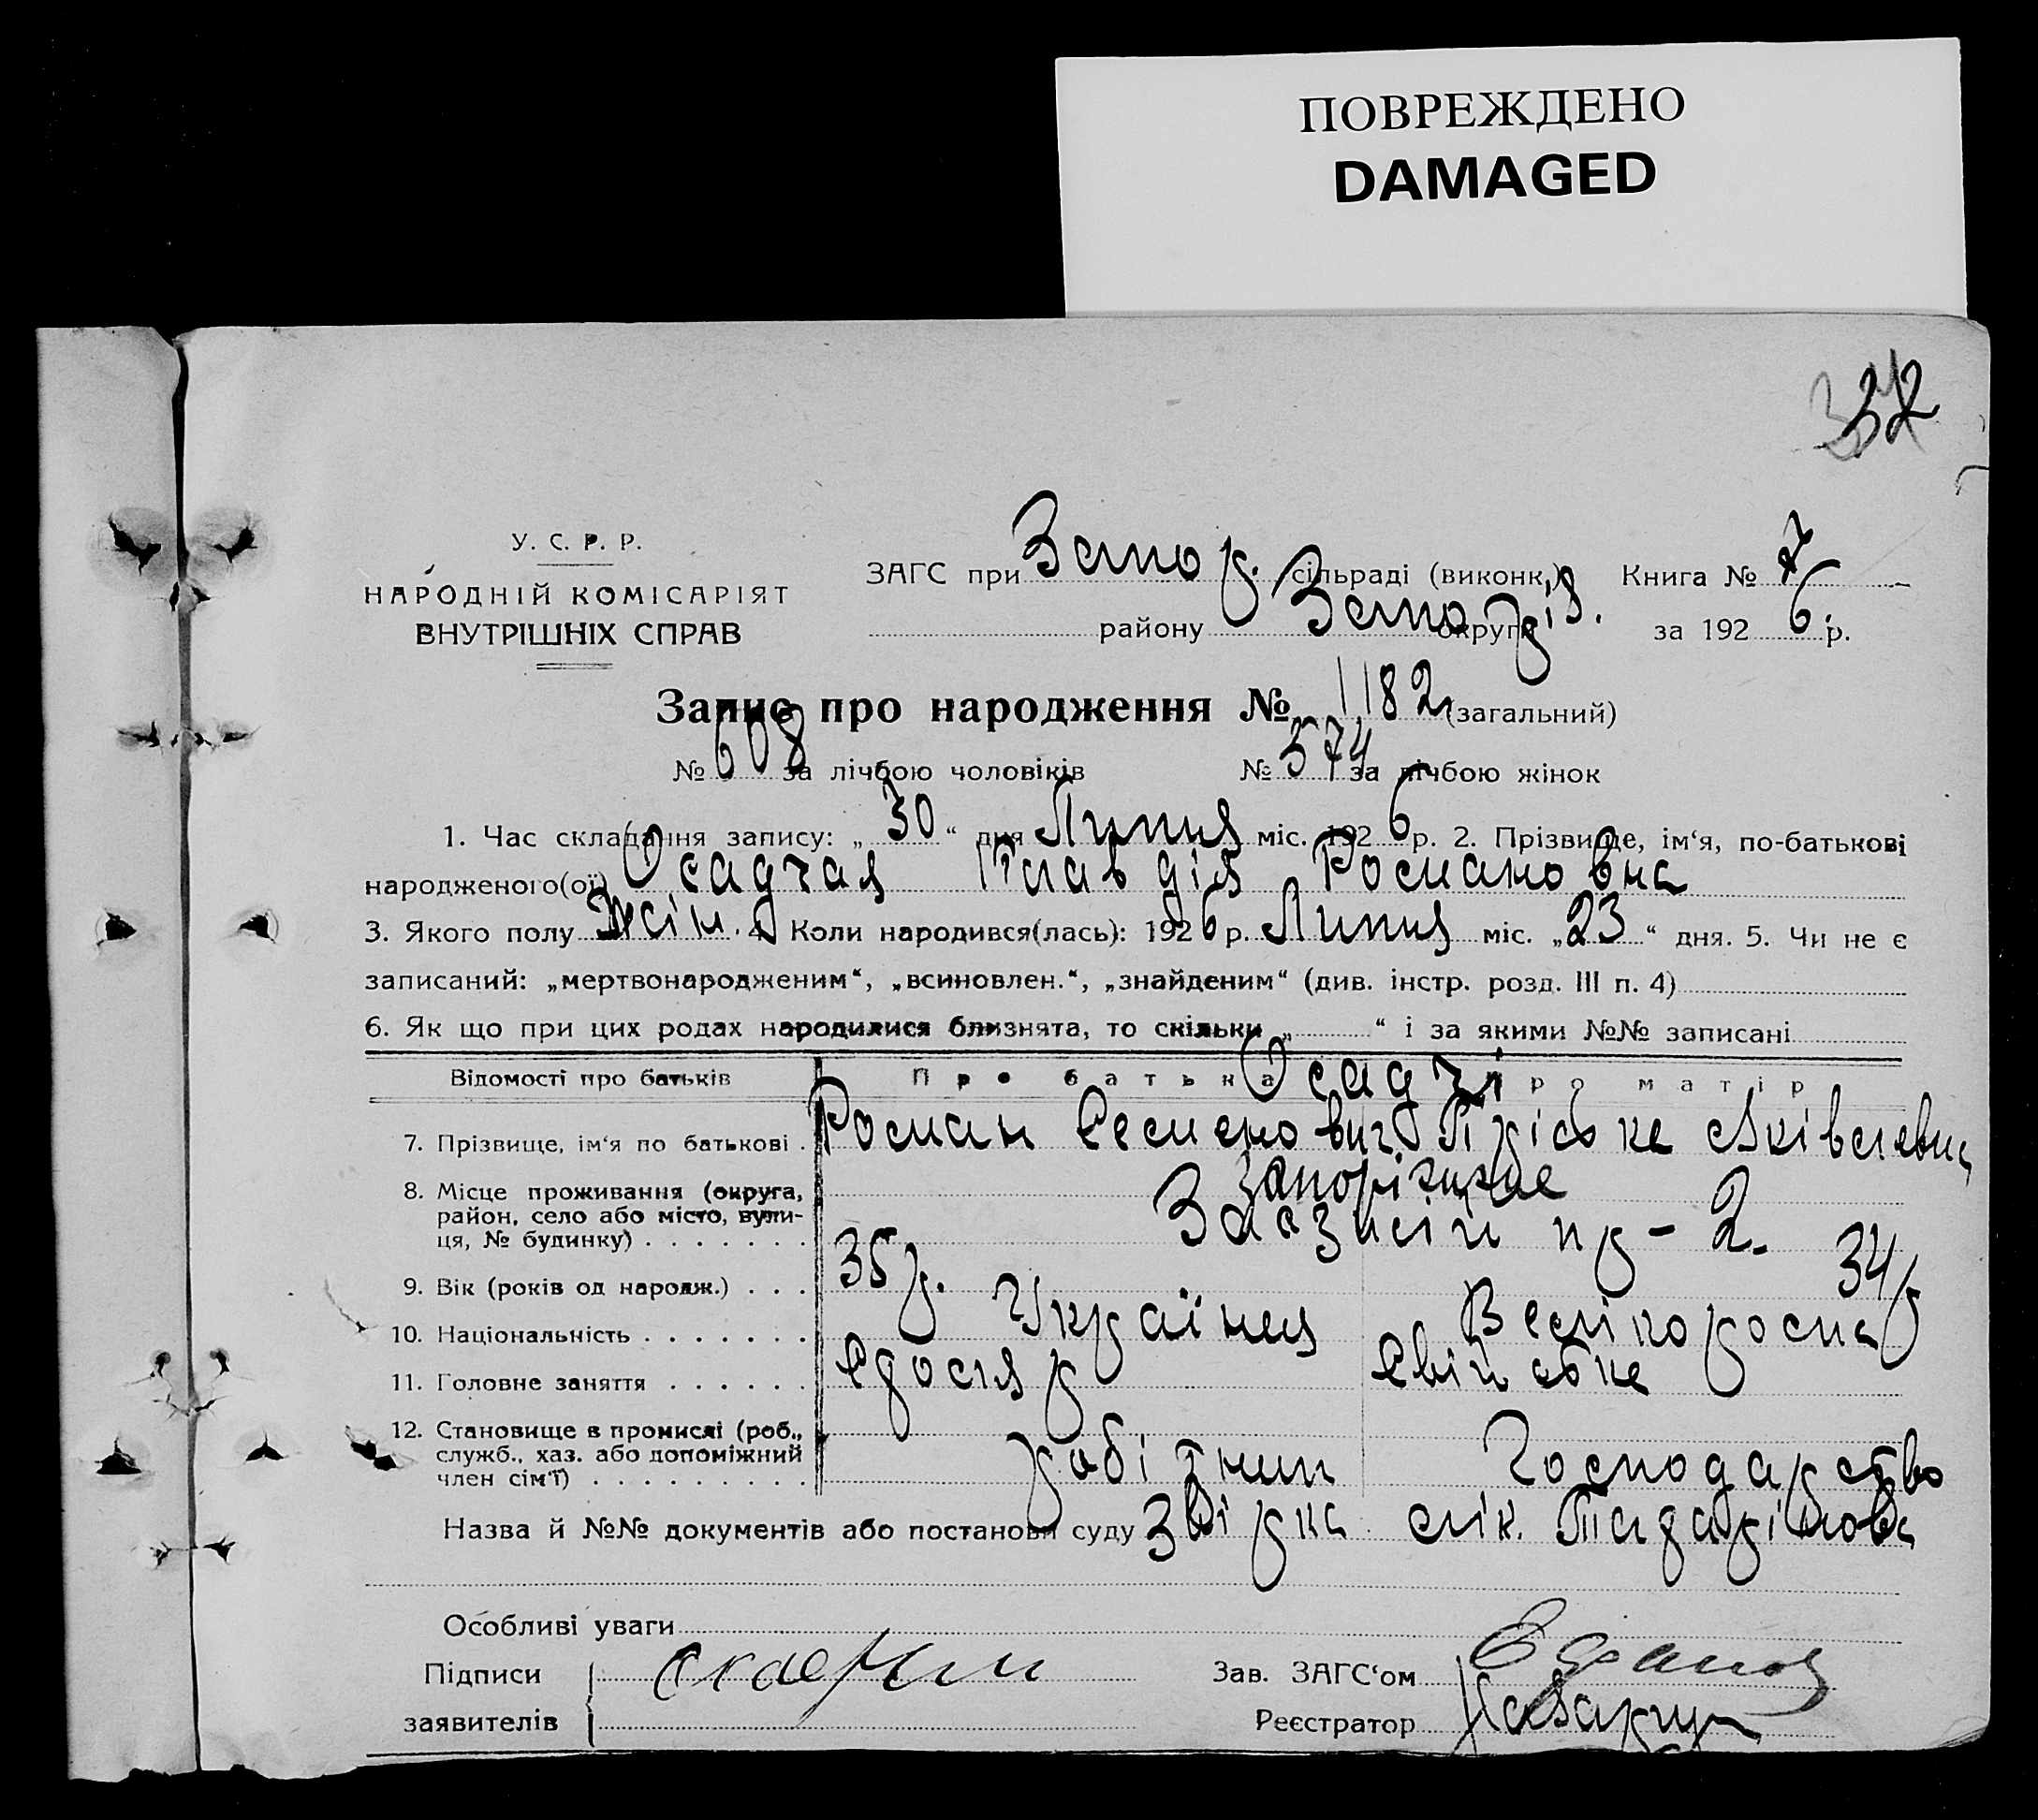 ПОВРЕЖДЕНО
DAMAGED
32
У. С. Р. Р.
НАРОДНІЙ КОМІСАРІЯТ
ВНУТРІШНІХ СПРАВ
ЗАГС при Запор. сільраді (виконк.) Книга № 7
району Запоріз. округи за 1926 р.
Запис про народження № 1182 (загальний)
№ 608 за лічбою чоловіків № 574 за лічбою жінок
1. Час складання запису: „30“ дня Липня міс. 1926 р. 2. Прізвище, ім‘я, по-батькові
народженого(ої) Осадчая Клавдія Романовна
3. Якого полу жін. 4. Коли народився(лась): 1926 р. Липня міс. „23“ дня. 5. Чи не є
записаний: „мертвонародженим“, „всиновлен.“, „знайденим“ (див. інстр. розд. III п. 4)
6. Як що при цих родах народилися близнята, то скільки „ “ і за якими №№ записані
Відомості про батьків Про батька Осадчі Про матір
7. Прізвище, ім‘я по батькові . Роман Семенович
8. Місце проживання (округа, Запоріжжє
район, село або місто, вули-
ця, № будинку) . . . . . . . 2.
9. Вік (років од народж.) . . . 35 р. 34 р
10. Національність . . . . . . . Українця Велікоросна
11. Головне заняття . . . . . . Єдосляр Свійське
12. Становище в промислі (роб.,
служб., хаз. або допоміжний робітник Господарство
член сім‘ї) . . . . . . . . .
Назва й №№ документів або постанови суду Звірка лік.
Особливі уваги
Підписи
заявителів
Зав. ЗАГС‘ом
Реєстратор